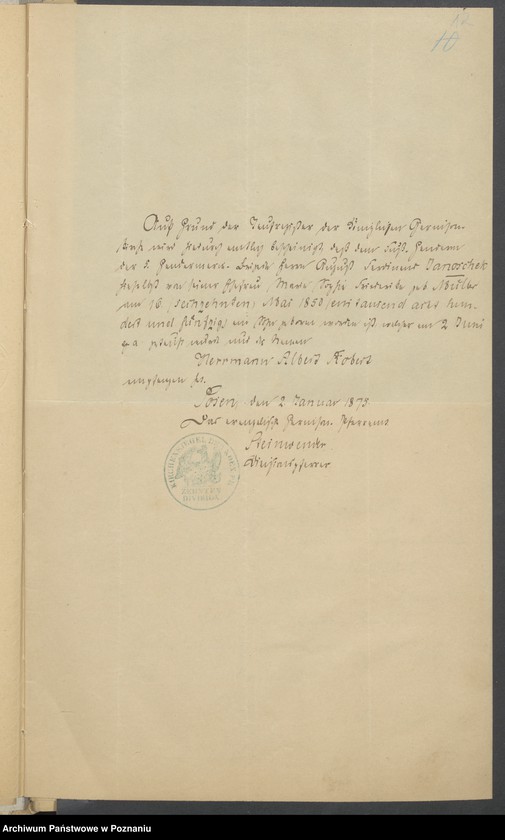 10
Auf Grund der Taufregister der Königlichen Garnison-
wird hierdurch amtlich bescheinigt daß dem
der 5. Gendarmerie-Brigade Herrn August Ferdinand Janoschek
hieselbst von seiner Ehefrau, Marie, Sophie Friederike geb. Mueller
am 16. (sechzehnten) Mai 1850 (eintausend acht hun-
dert und fünfzig) ein Sohn geboren worden ist, welcher am 2 Juni
getauft worden und die Namen
Herrmann Albert Robert
empfangen hat.
Posen, den 2 Januar 1873.
Das evangelische Garnison-Pfarramt
Divisionspfarrer
KIRCHENSIEGEL DER KOEN. PR.
ZEHNTEN
DIVISION
Archiwum Państwowe w Poznaniu